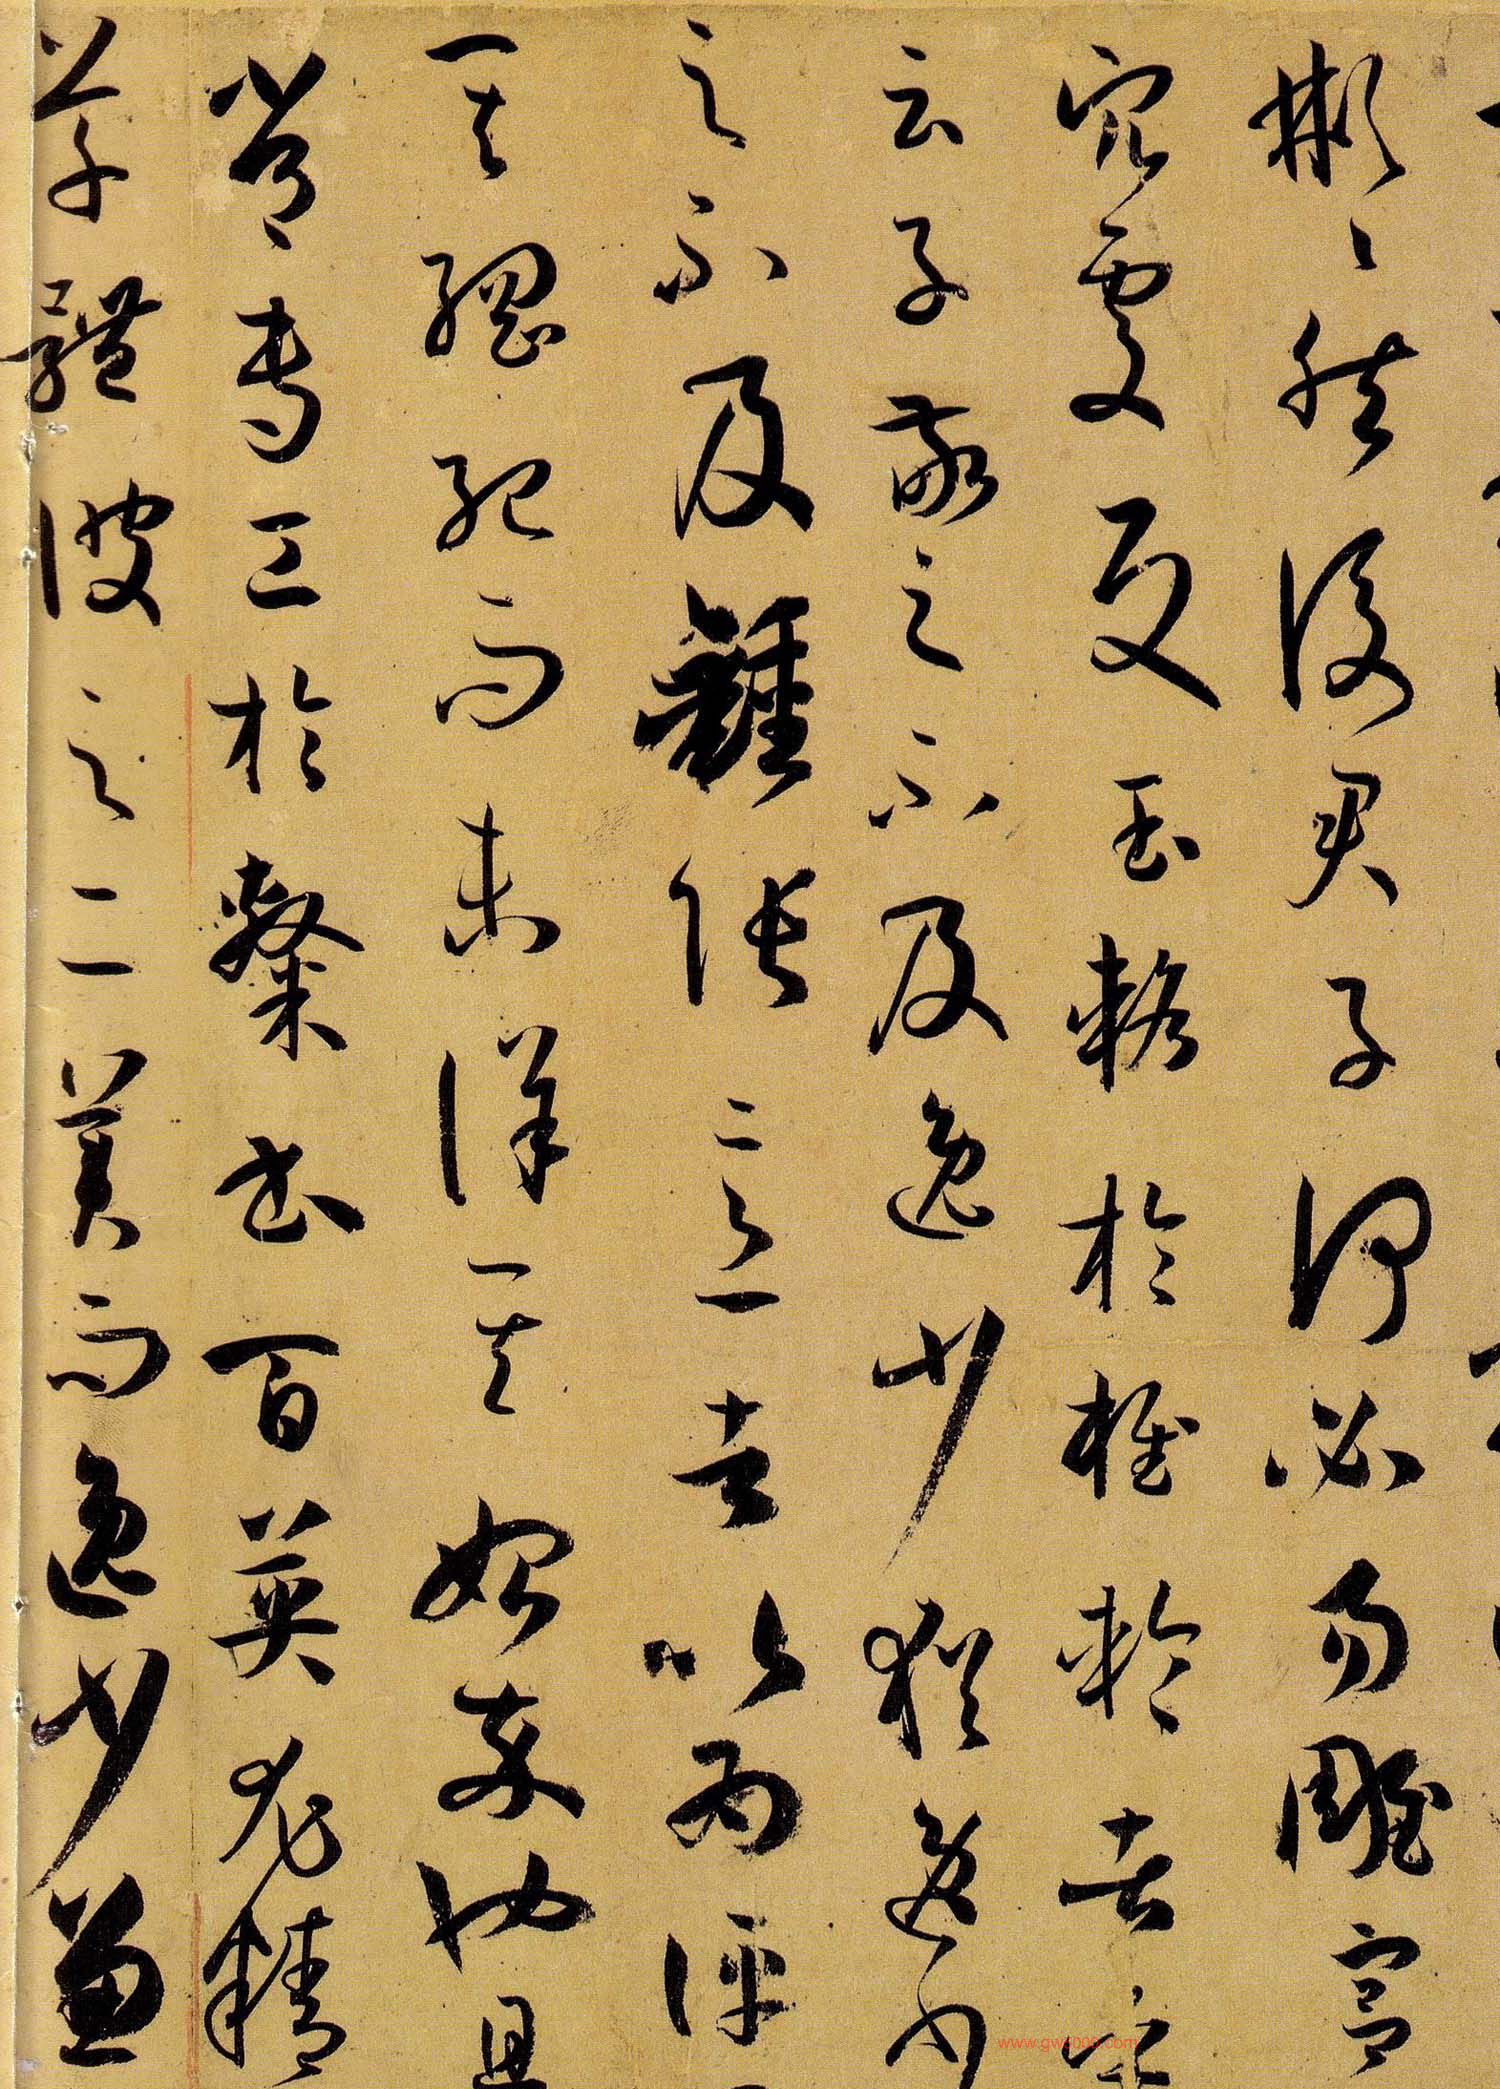 彬〻然後君子何必易雕宮
穴處反玉輅於椎輪者乎
云子敬之不及逸少猶逸少
之不及鍾張意者以為評
其綱紀而未詳其始卒也且
常專工於隸書百英尤精
草體彼之二美而逸少兼
www.gw5000.com